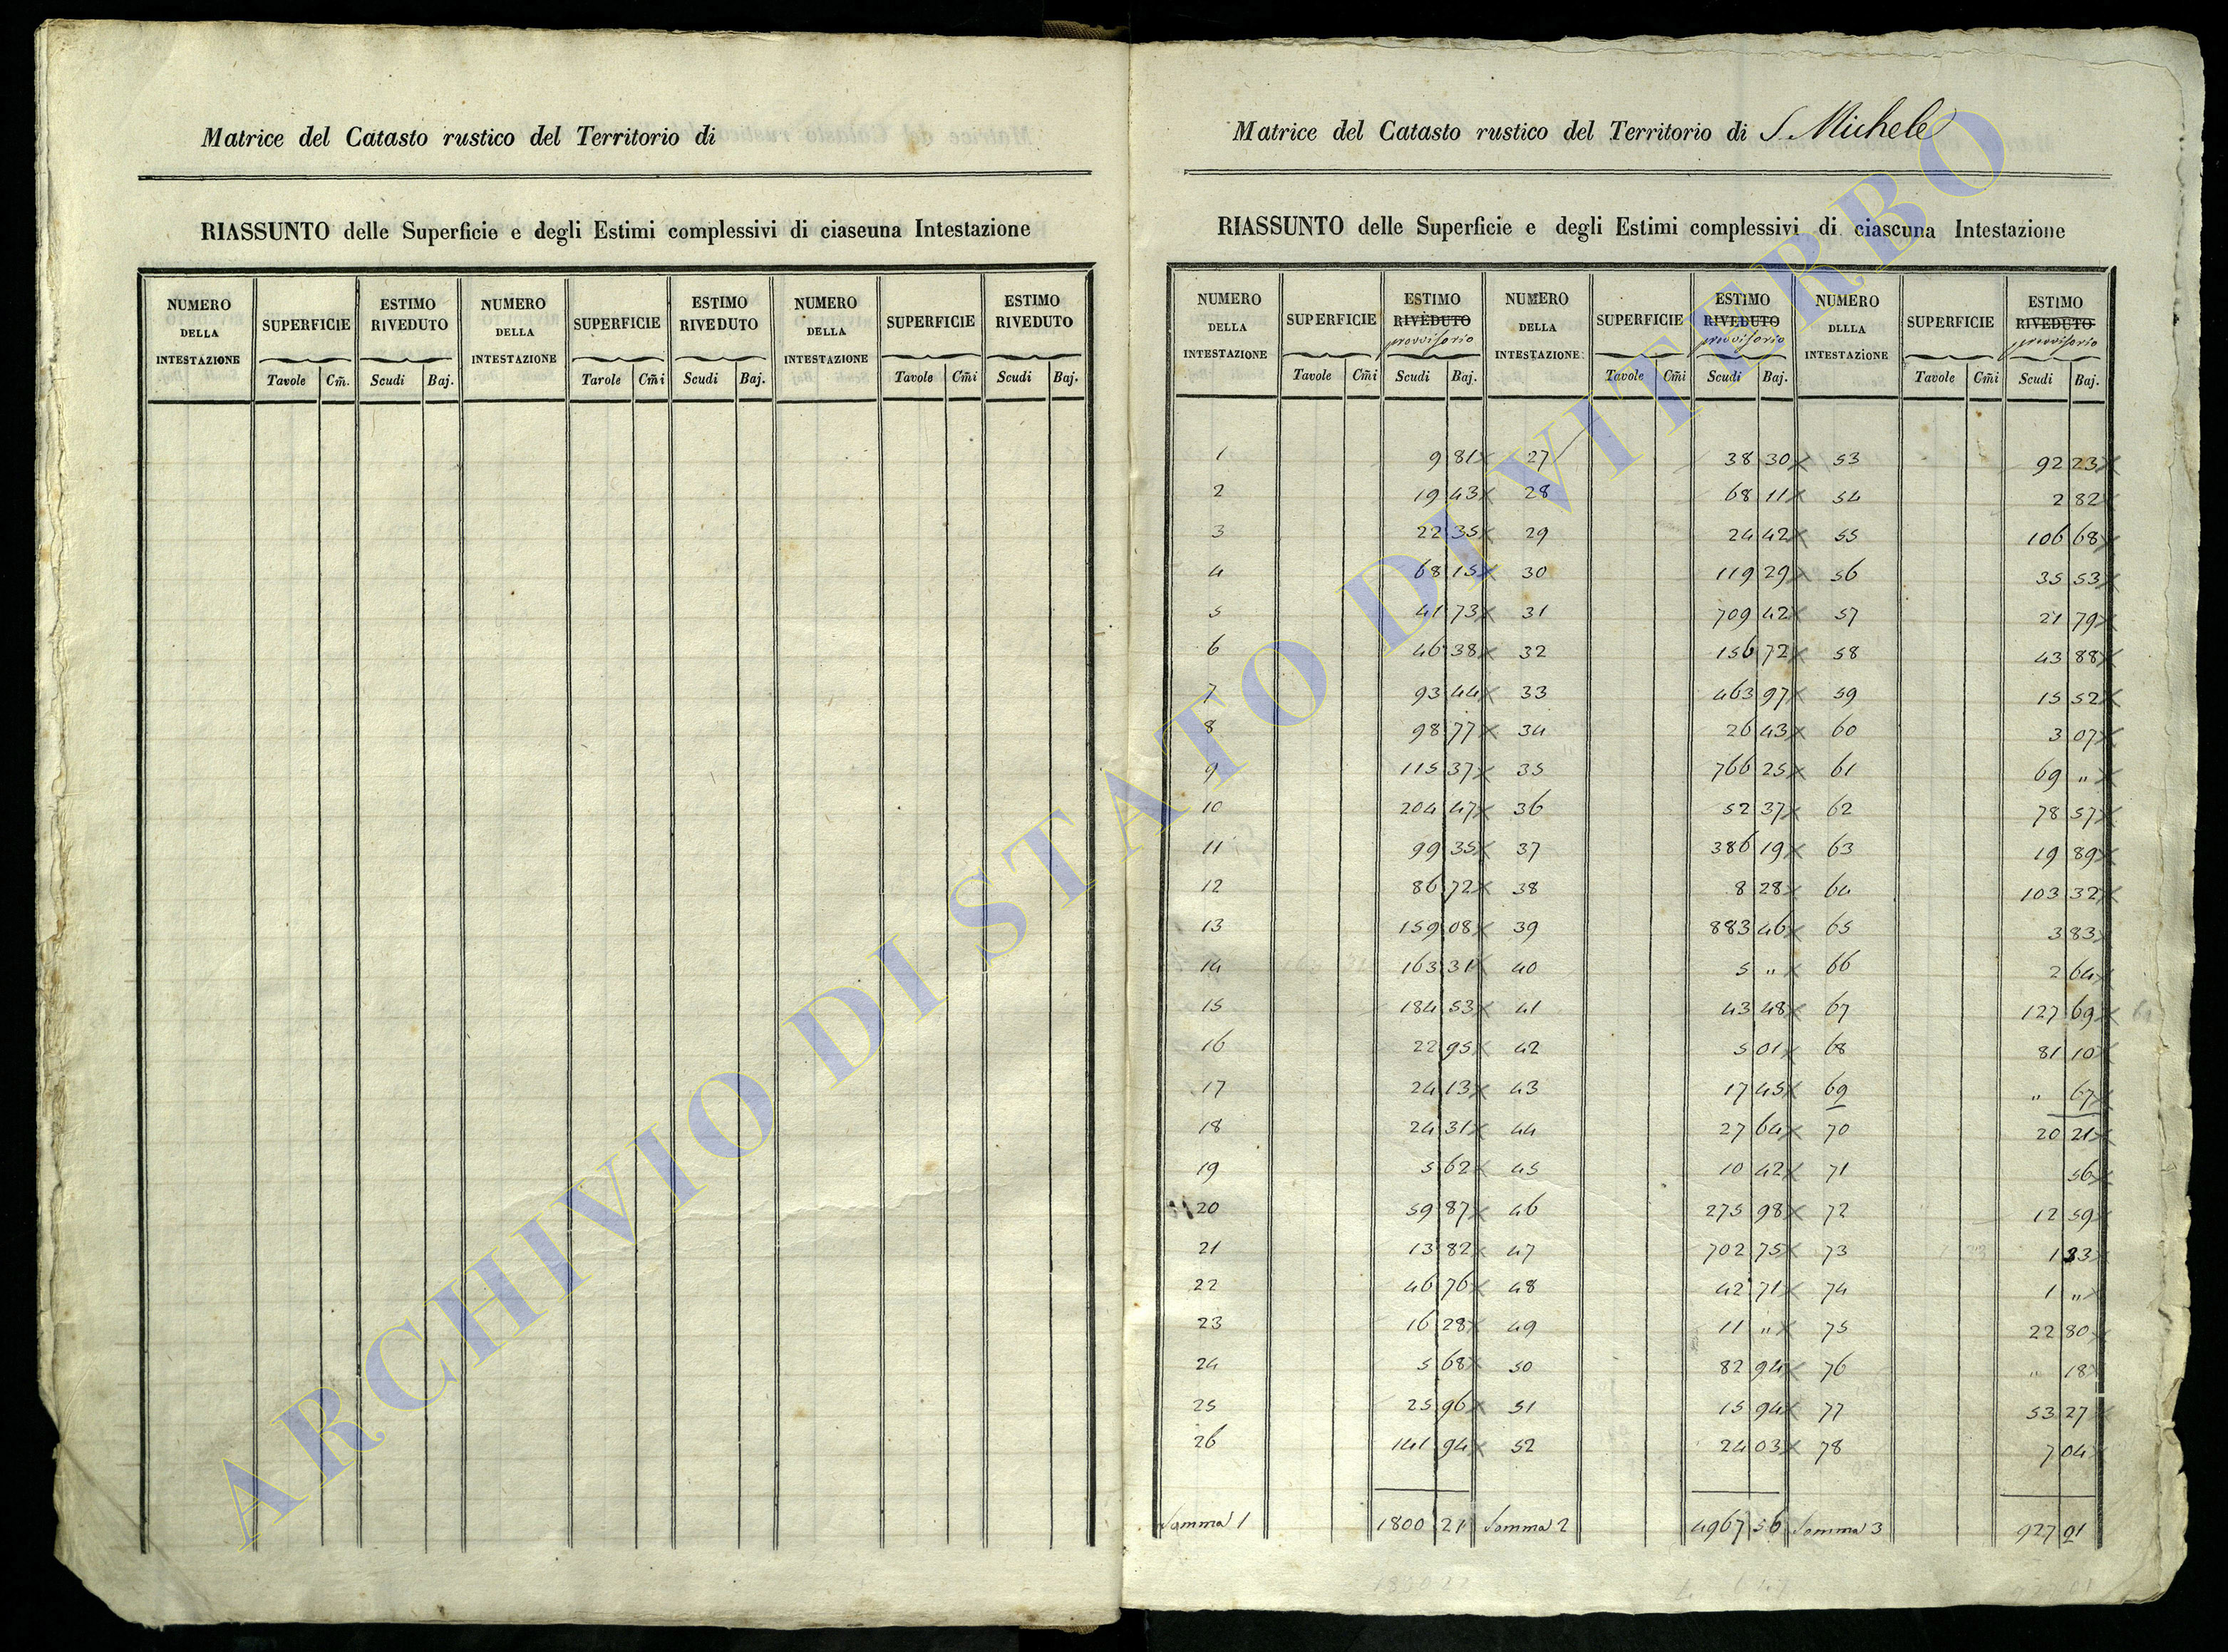 Matrice del Catasto rustico del Territorio di
RIASSUNTO delle Superficie e degli Estimi complessivi di ciaseuna Intestazione
NUMERO DELLA INTESTAZIONE SUPERFICIE ESTIMO RIVEDUTO NUMERO DELLA INTESTAZIONE SUPERFICIE ESTIMO RIVEDUTO NUMERO DELLA INTESTAZIONE SUPERFICIE ESTIMO RIVEDUTO
Tavole Cm̃. Scudi Baj. Tarole Cm̃i Scudi Baj. Tavole Cm̃i Scudi Baj.
Matrice del Catasto rustico del Territorio di S. Michele
RIASSUNTO delle Superficie e degli Estimi complessivi di ciascuna Intestazione
NUMERO DELLA INTESTAZIONE SUPERFICIE ESTIMO RIVEDUTO provvisorio NUMERO DELLA INTESTAZIONE SUPERFICIE ESTIMO RIVEDUTO provvisorio NUMERO DLLLA INTESTAZIONE SUPERFICIE ESTIMO RIVEDUTO provvisorio
Tavole Cm̃i Scudi Baj. Tavole Cm̃i Scudi Baj. Tavole Cm̃i Scudi Baj.
1 9 81 27 38 30 53 92 23
2 19 43 28 68 11 54 2 82
3 22 35 29 24 42 55 106 68
4 68 15 30 119 29 56 35 53
5 41 73 31 709 42 57 21 79
6 46 38 32 156 72 58 43 88
7 93 44 33 463 97 59 15 52
8 98 77 34 26 43 60 3 07
9 115 37 35 766 25 61 69 "
10 204 47 36 52 37 62 78 57
11 99 35 37 386 19 63 19 89
12 86 72 38 8 28 64 103 32
13 159 08 39 883 46 65 3 83
14 163 31 40 5 " 66 2 64
15 184 53 41 43 48 67 127 69
16 22 95 42 5 01 68 81 10
17 24 13 43 17 45 69 " 67
18 24 31 44 27 64 70 20 21
19 5 62 45 10 42 71 56
20 59 87 46 275 98 72 12 59
21 13 82 47 702 75 73 1 33
22 46 76 48 42 71 74 1 "
23 16 28 49 11 " 75 22 80
24 5 68 50 82 94 76 " 18
25 25 96 51 15 94 77 53 27
26 141 94 52 24 03 78 7 04
Somma 1 1800 21 Somma 2 4967 56 Somma 3 927 91
ARCHIVIO DI STATO DI VITERBO